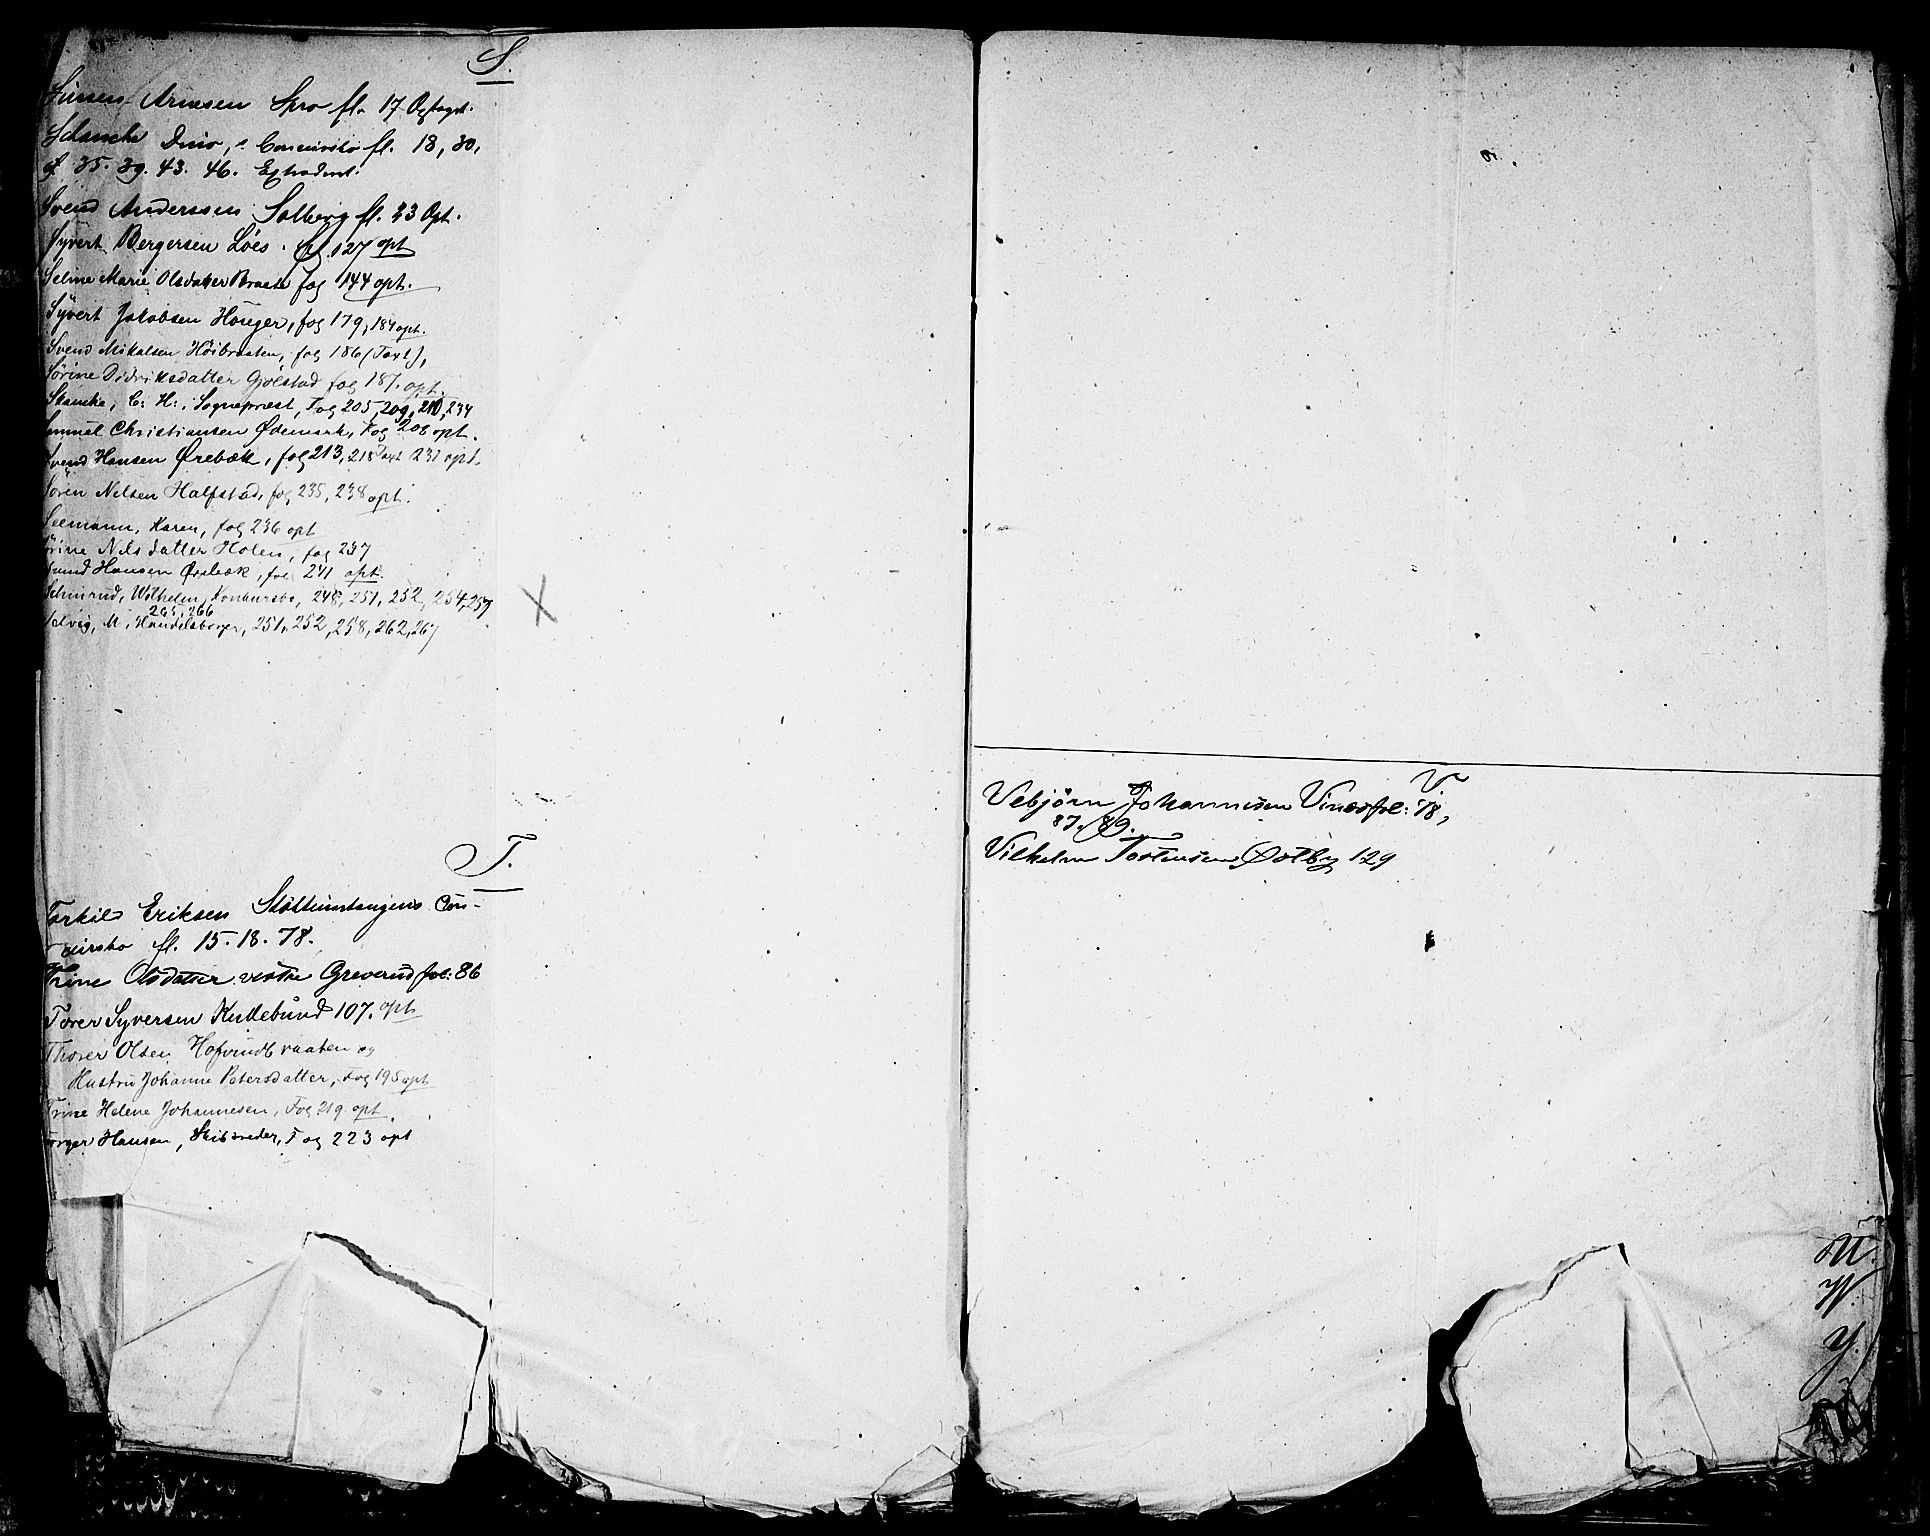 S.
Simen Arnesen Spro fl. 17 Opslaget.
Schanche Dno, s. Concursbo fl. 18, 30,
35. 39. 43. 46. Extraderet.
Svend Anderssen Solberg fl. 23 Opt.
Syvert Bergersen Löes. 127 opt
Seline Marie Olsdatter Braate fog 144 opt.
Syvert Jakobsen Houger, fog 179, 184 opt.
Svend Mikalsen Höibraaten, fog 186 (Taxt),
Sörine Didriksdatter Gjölstad fog 187. opt.
Skanche, C. H., Sognepræst, Fog 205, 209, 210, 234
Samuel Christiansen Ødemark, Fog 208 opt.
Svend Hansen Ørebæk, fog 213, 218 Taxt 231 opt.
Sören Nilsen Halfstad, fog 235, 238 opt.
Seemann, Karen, fog 236 opt
Sörine Nilsdatter Holen, fog 237
Svend Hansen Ørebæk, fog 241 opt.
Schinrud, Wilhelm, Konkursbo, 248, 251, 252, 254, 257
265, 266
Selvig, M, Handelsborger, 251, 252, 258, 262, 267
T.
Torkild Eriksen Stöttumtangens Con-
cursbo fl. 15. 18. 78.
Trine Olsdatter vestre Greverud fol: 86
Torer Syversen Kullebund 107. opt
Thorer Olsen Hofvindbraaten og
Hustru Johanne Petersdatter, Fog 195 opt
Trine Helene Johannesen, Fog 219 opt.
Hansen, Skibsreder, Fog 223 opt
V.
Vebjörn Johannesen Vinæs fol: 78,
87. 89.
Vilhelm Torstensen Østby 129
U.
W.
Y.